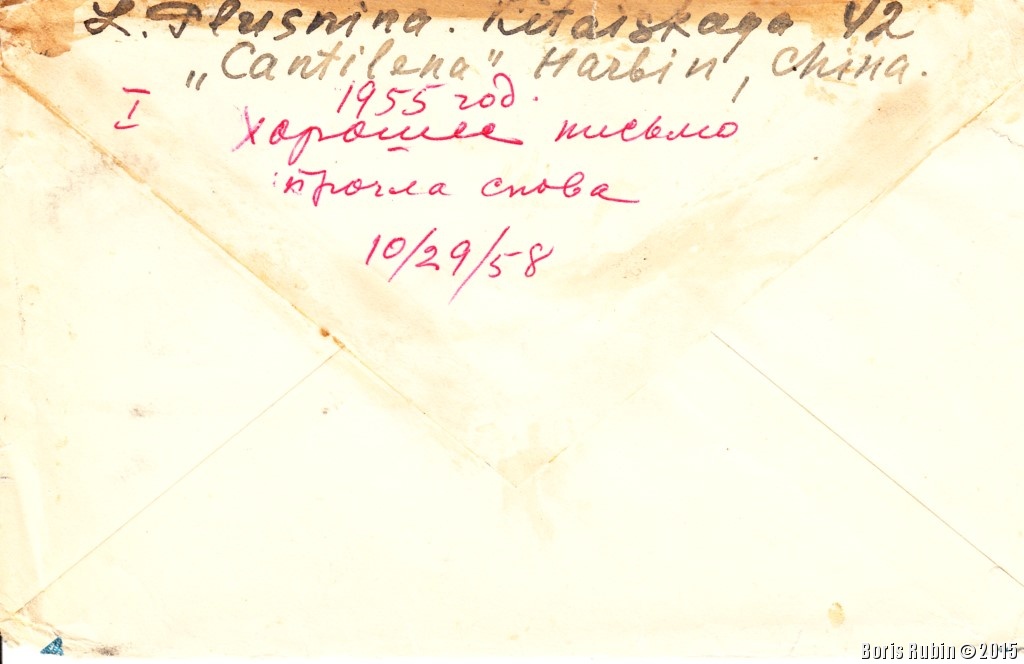 L. Plusnina. Kitaiskaya 42
„Cantilena" Harbin, China.
1955 год.
I Хорошее письмо
прочла снова
10/29/58
Boris Rubin © 2015